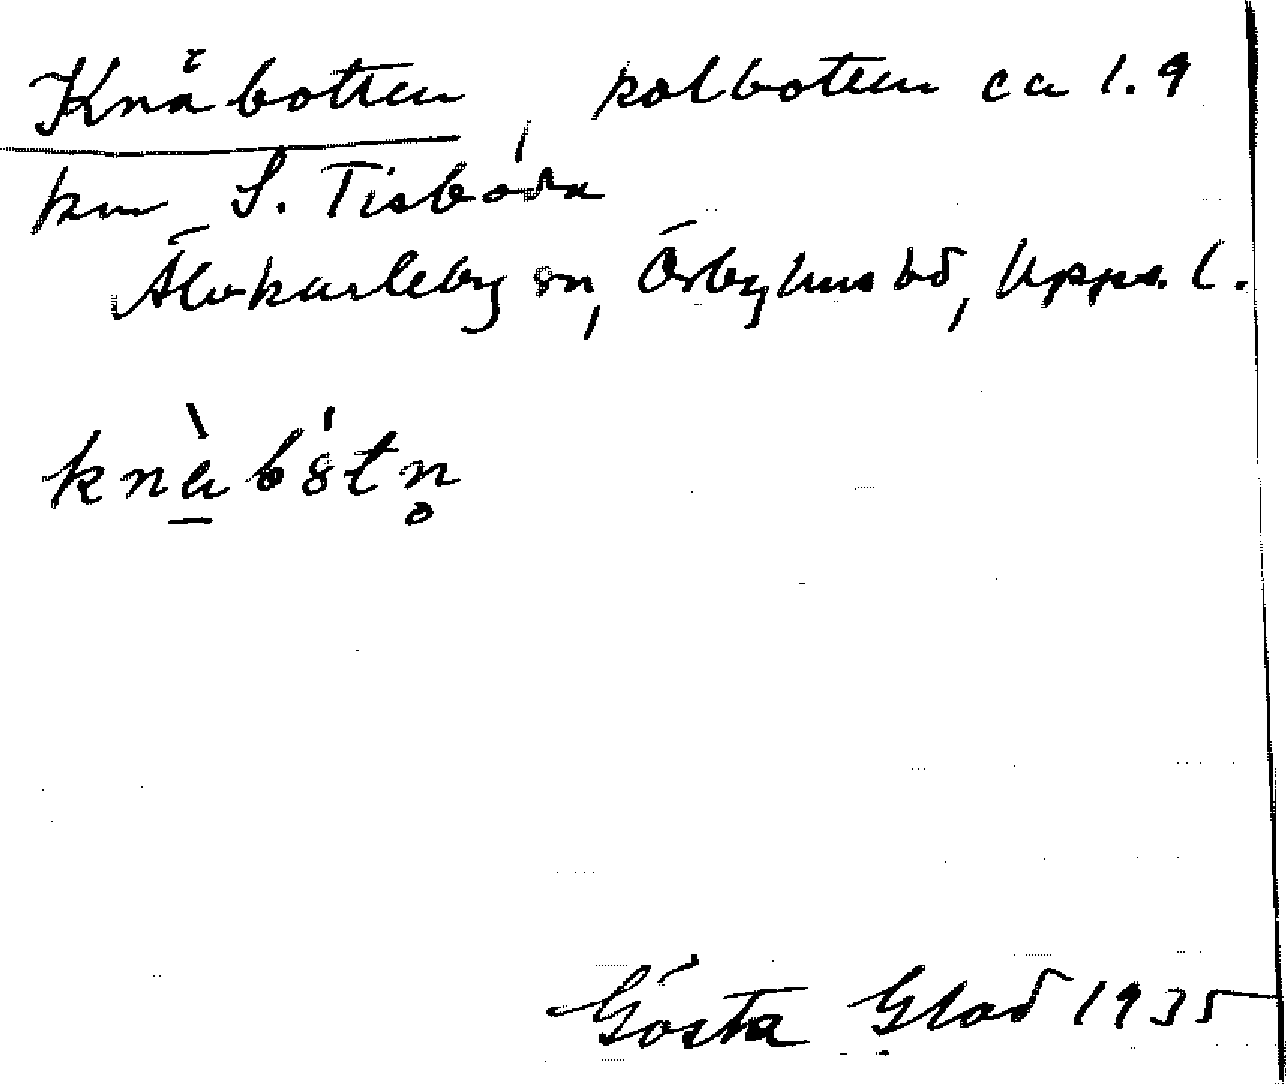 Knåbotten, kolbotten ca 1.9
km S. Tisboda
Älvkarleby sn, Örbyhus hd, Upps. l.
knàbótn̥
Gösta Glad 1935